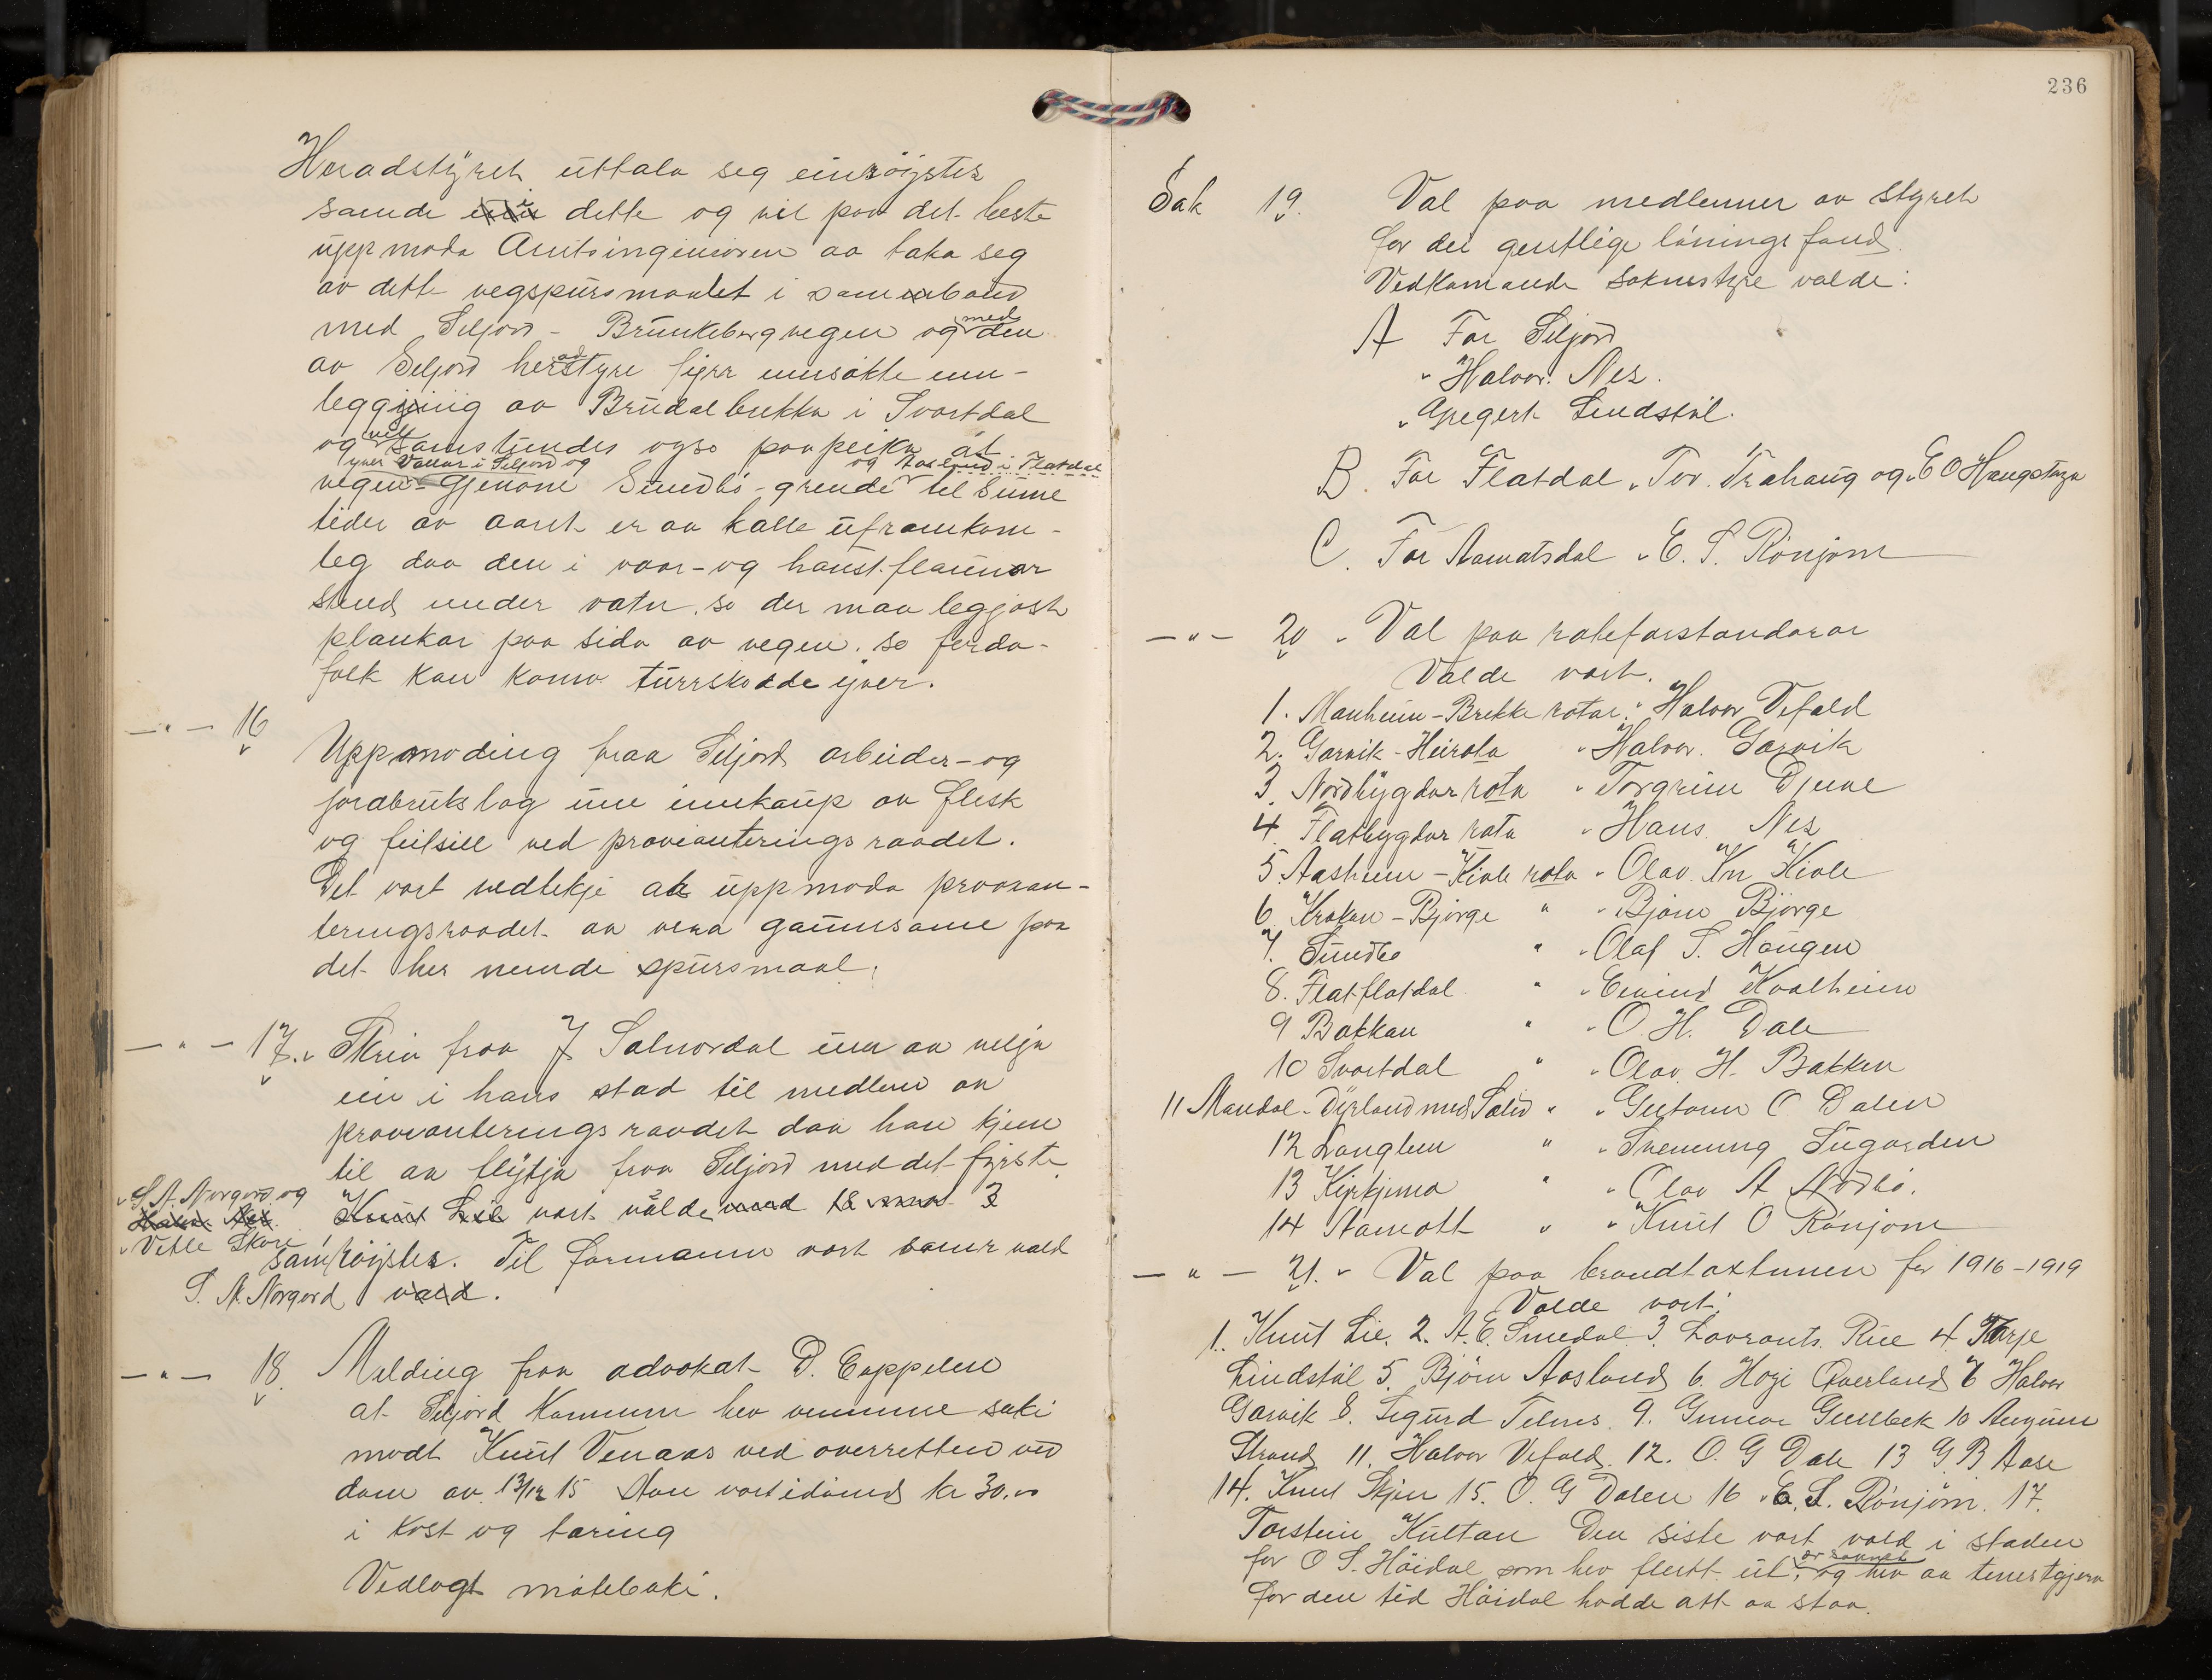 Heradstyret uttala seg einröystes
samde i dette og vil paa det beste
uppmoda Amtsingeniören aa taka seg
av dette vegspursmaalet i samenband
med Seljord - Brunkebergvegen og med den
av Seljord heradstyre fyrr umsökte um-
legging av Brudalbrekka i Svartdal
og vil samstundes ogso paapeika at
yver Vallar i Seljord og
og Aasland i Flatdal
vegen - gjenom Sundbö-grendi til sume
tider av aaret er aa kalle uframkom-
leg daa den i vaar- og haust-flaumar
stend under vatn, so der maa leggjast
plankar paa sida av vegen, so ferda-
folk kan koma turrskodde yver.
— " — 16
Uppmoding fraa Seljord arbeider- og
jordbrukslag um innkaup av flesk
og feitsill ved provianteringsraadet.
Det vart vedtekje at uppmoda provian-
teringsraadet aa vera gaumsame paa
det her nemde spursmaal.
— " — 17. Skriv fraa J Salmordal um aa velja
ein i hans stad til medlem av
provianteringsraadet daa han kjem
til aa flytja fraa Seljord med det fyrste.
S. N. Norgard og
Vetle Skore
Knut Lie vart valde med 18 mot 3
samröystes. Til formann vart samr vald
S. N. Norgard vald.
— " — 18. Melding fraa advokat D. Cappelen
at Seljord Kommune hev vunne saki
modt Knut Venaas ved overretten ved
dom av 13/12 15 Han vart idömd kr 30.00
i kost og taring
Vedlagt möteboki.
236
Sak 19. Val paa medlemer av styret
for dei geistlige löningsfond.
Vedkomande soknestyre valde:
A For Seljord
" Halvor Nes.
" Gregert Lindstöl.
B. For Flatdal " Tov Trahaug og " E O Haugstoga
C. For Aamotsdal " E. S. Rönjom
— " — 20 " Val paa roteforstandarar
Valde vart.
1. Manheim - Brekke rotar " Halvor Vefald
2. Garvik - Heirota " Halvor Garvik
3. Nordbygdar rota " Torgrim Djuve
4. Flatbygdar rota " Hans Nes
5. Aasheim - Kivle rota " Olav Kn Kivle
6. Kroken - Bjørge " " Bjørn Bjørge
7. Sundbö " " Olaf S. Haugen
8. Flatflatdal " " Eivind Kvalheim
9 Bakkan " " O. H. Dale
10 Svartdal " " Olav H. Bakken
11 Mandal - Dyrland med Salid " " Guttorm O Dalen
12 Langlim " " Svenung Lugarden
13 Kyrkjema " " Olav A Nödbö.
14 Aamott " " Knut O Rönjom
— " — 21. " Val paa brandtakstmenn for 1916-1919
Valde vart:
1. Knut Lie. 2. A. E. Smedal 3. Lavrants Rue 4. Tarje
Lindstöl 5. Björn Aasland 6. Hogi Överland 7 Halvor
Garvik 8. Sigurd Telnes. 9. Gunnar Gullbek 10 Aanund
Strand 11. Halvor Vefald. 12. O. G Dale 13 G. B Aase
14. Knut Skjen 15. O. G Dalen 16 " E. S. Rönjom. 17.
Torstein Kultan Den siste vart vald i staden
for O S. Höidal som hev flutt ut, og hev aa tenestgjera
for den tid Höidal hadde att aa staa.